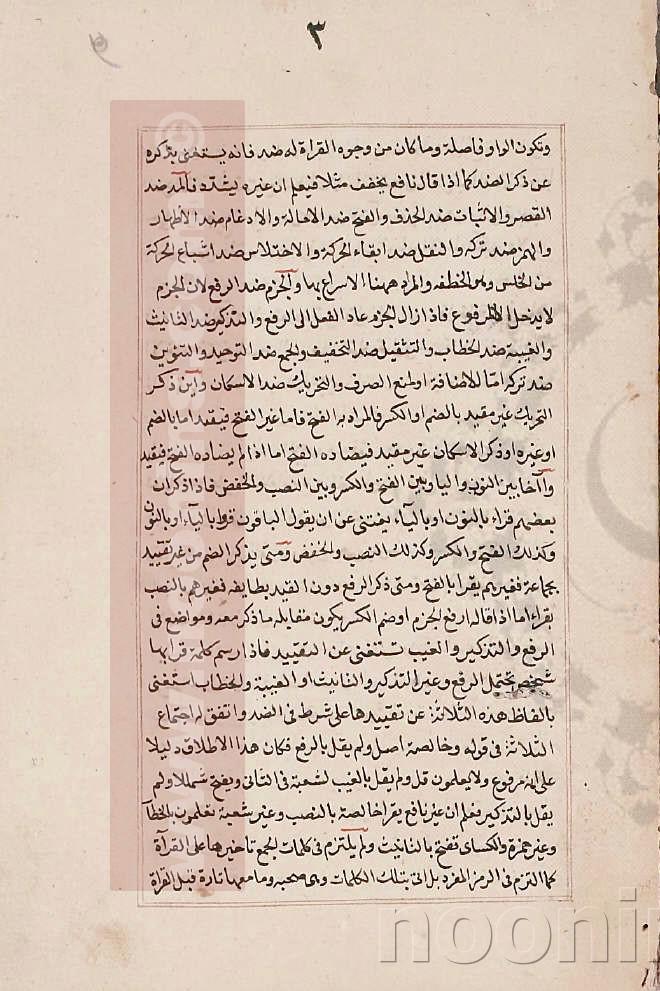 ٣
وتكون الواو فاصلة وما كان من وجوه القراة له ضد فانه يستغنى بذكره
عن ذكر الضد كما اذا قال نافع يخفف مثلا فيعلم ان غيره يشدد فالمد ضد
القصر والاثبات ضد الحذف والفتح ضد الامالة والادغام ضد الاظهار
والهمز ضد تركه والنقل ضد ابقاء الحركة والاختلاس ضد اشباع الحركة
من الخلس وهو الخطفه والمراد ههنا الاسراع بها والجزم ضد الرفع لان الجزم
لا يدخل الا المرفوع فاذا زال الجزم عاد الفعل الى الرفع والتذكير ضد التانيث
والغيبة ضد الخطاب والتثقيل ضد التخفيف والجمع ضد التوحيد والتنوين
ضد تركه امّا للاضافة او لمنع الصرف والتحريك ضد الاسكان واين ذكر
التحريك غير مقيد بالضم او الكسر فالمراد به الفتح فاما غير الفتح فيقيد اما بالضم
او غيره او ذكر الاسكان غير مقيد فيضاده الفتح اما اذا لم يضاده الفتح فيقيد
وآخا بين النون واليا وبين الفتح والكسر وبين النصب والخفض فاذا ذكر ان
بعضهم قراء بالنون او باليآء يغتنى عن ان يقول الباقون قروا باليآء او بالنون
وكذلك الفتح والكسر وكذلك النصب والخفض ومتى يذكر الضم من غير تقييد
بجماعة فغيرهم يقرا بالفتح ومتى ذكر الرفع دون القيد بطايفه فغيرهم بالنصب
يقراء اما اذا قاله ارفع الجزم او ضم الكسر يكون مقابله ما ذكر معه ومواضع فى
الرفع والتذكير والغيب تستغنى عن التقييد فاذا رسم كلمة قرا بها
شخص تحتمل الرفع وغير التذكير والتانيث او الغيبية والخطاب استغنى
بالفاظ هذه الثلاثة عن تقييدها على شرط فى الضد واتفق له اجتماع
الثلاثة فى قوله وخالصة اصل ولم يقل بالرفع فكان هذا الاطلاق دليلا
على انه مرفوع ولا يعلمون قل ولم يقل بالغيب لشعبة فى الثانى ويفتح شمللا ولم
يقل بالتذكير يعلم ان غير نافع يقرا خالصة بالنصب وغير شعبة تعلمون بالخطآ
وغير حمزة والكساى تفتح بالتانيث ولم يلتزم فى كلمات الجمع تاخيرها على القرآة
كما التزم فى الرمز المفرد بل اتى بتلك الكلمات وهى صحبه وما معها تارة قبل القراة
noonir